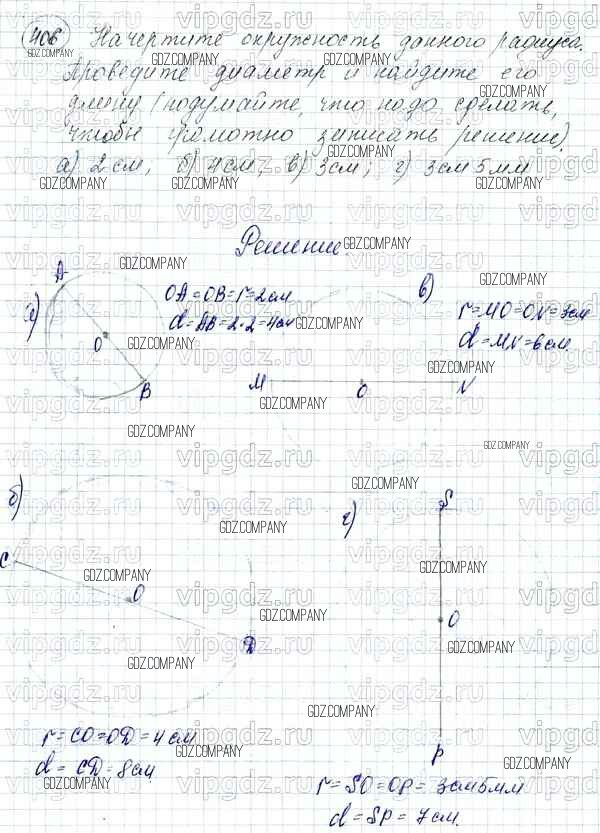 406 Начертите окружность данного радиуса.
Проведите диаметр и найдите его
длину (подумайте, что надо сделать,
чтобы грамотно записать решение).
а) 2 см, б) 4 см; в) 3 см; г) 3 см 5 мм
Решение.
а)
A
O
B
OA = OB = r = 2 см
d = AB = 2 · 2 = 4 см
в)
M
O
N
r = MO = ON = 3 см
d = MN = 6 см.
б)
C
O
D
r = CO = OD = 4 см
d = CD = 8 см
г)
S
O
P
r = SO = OP = 3 см 5 мм
d = SP = 7 см.
GDZ.COMPANY
vipgdz.ru